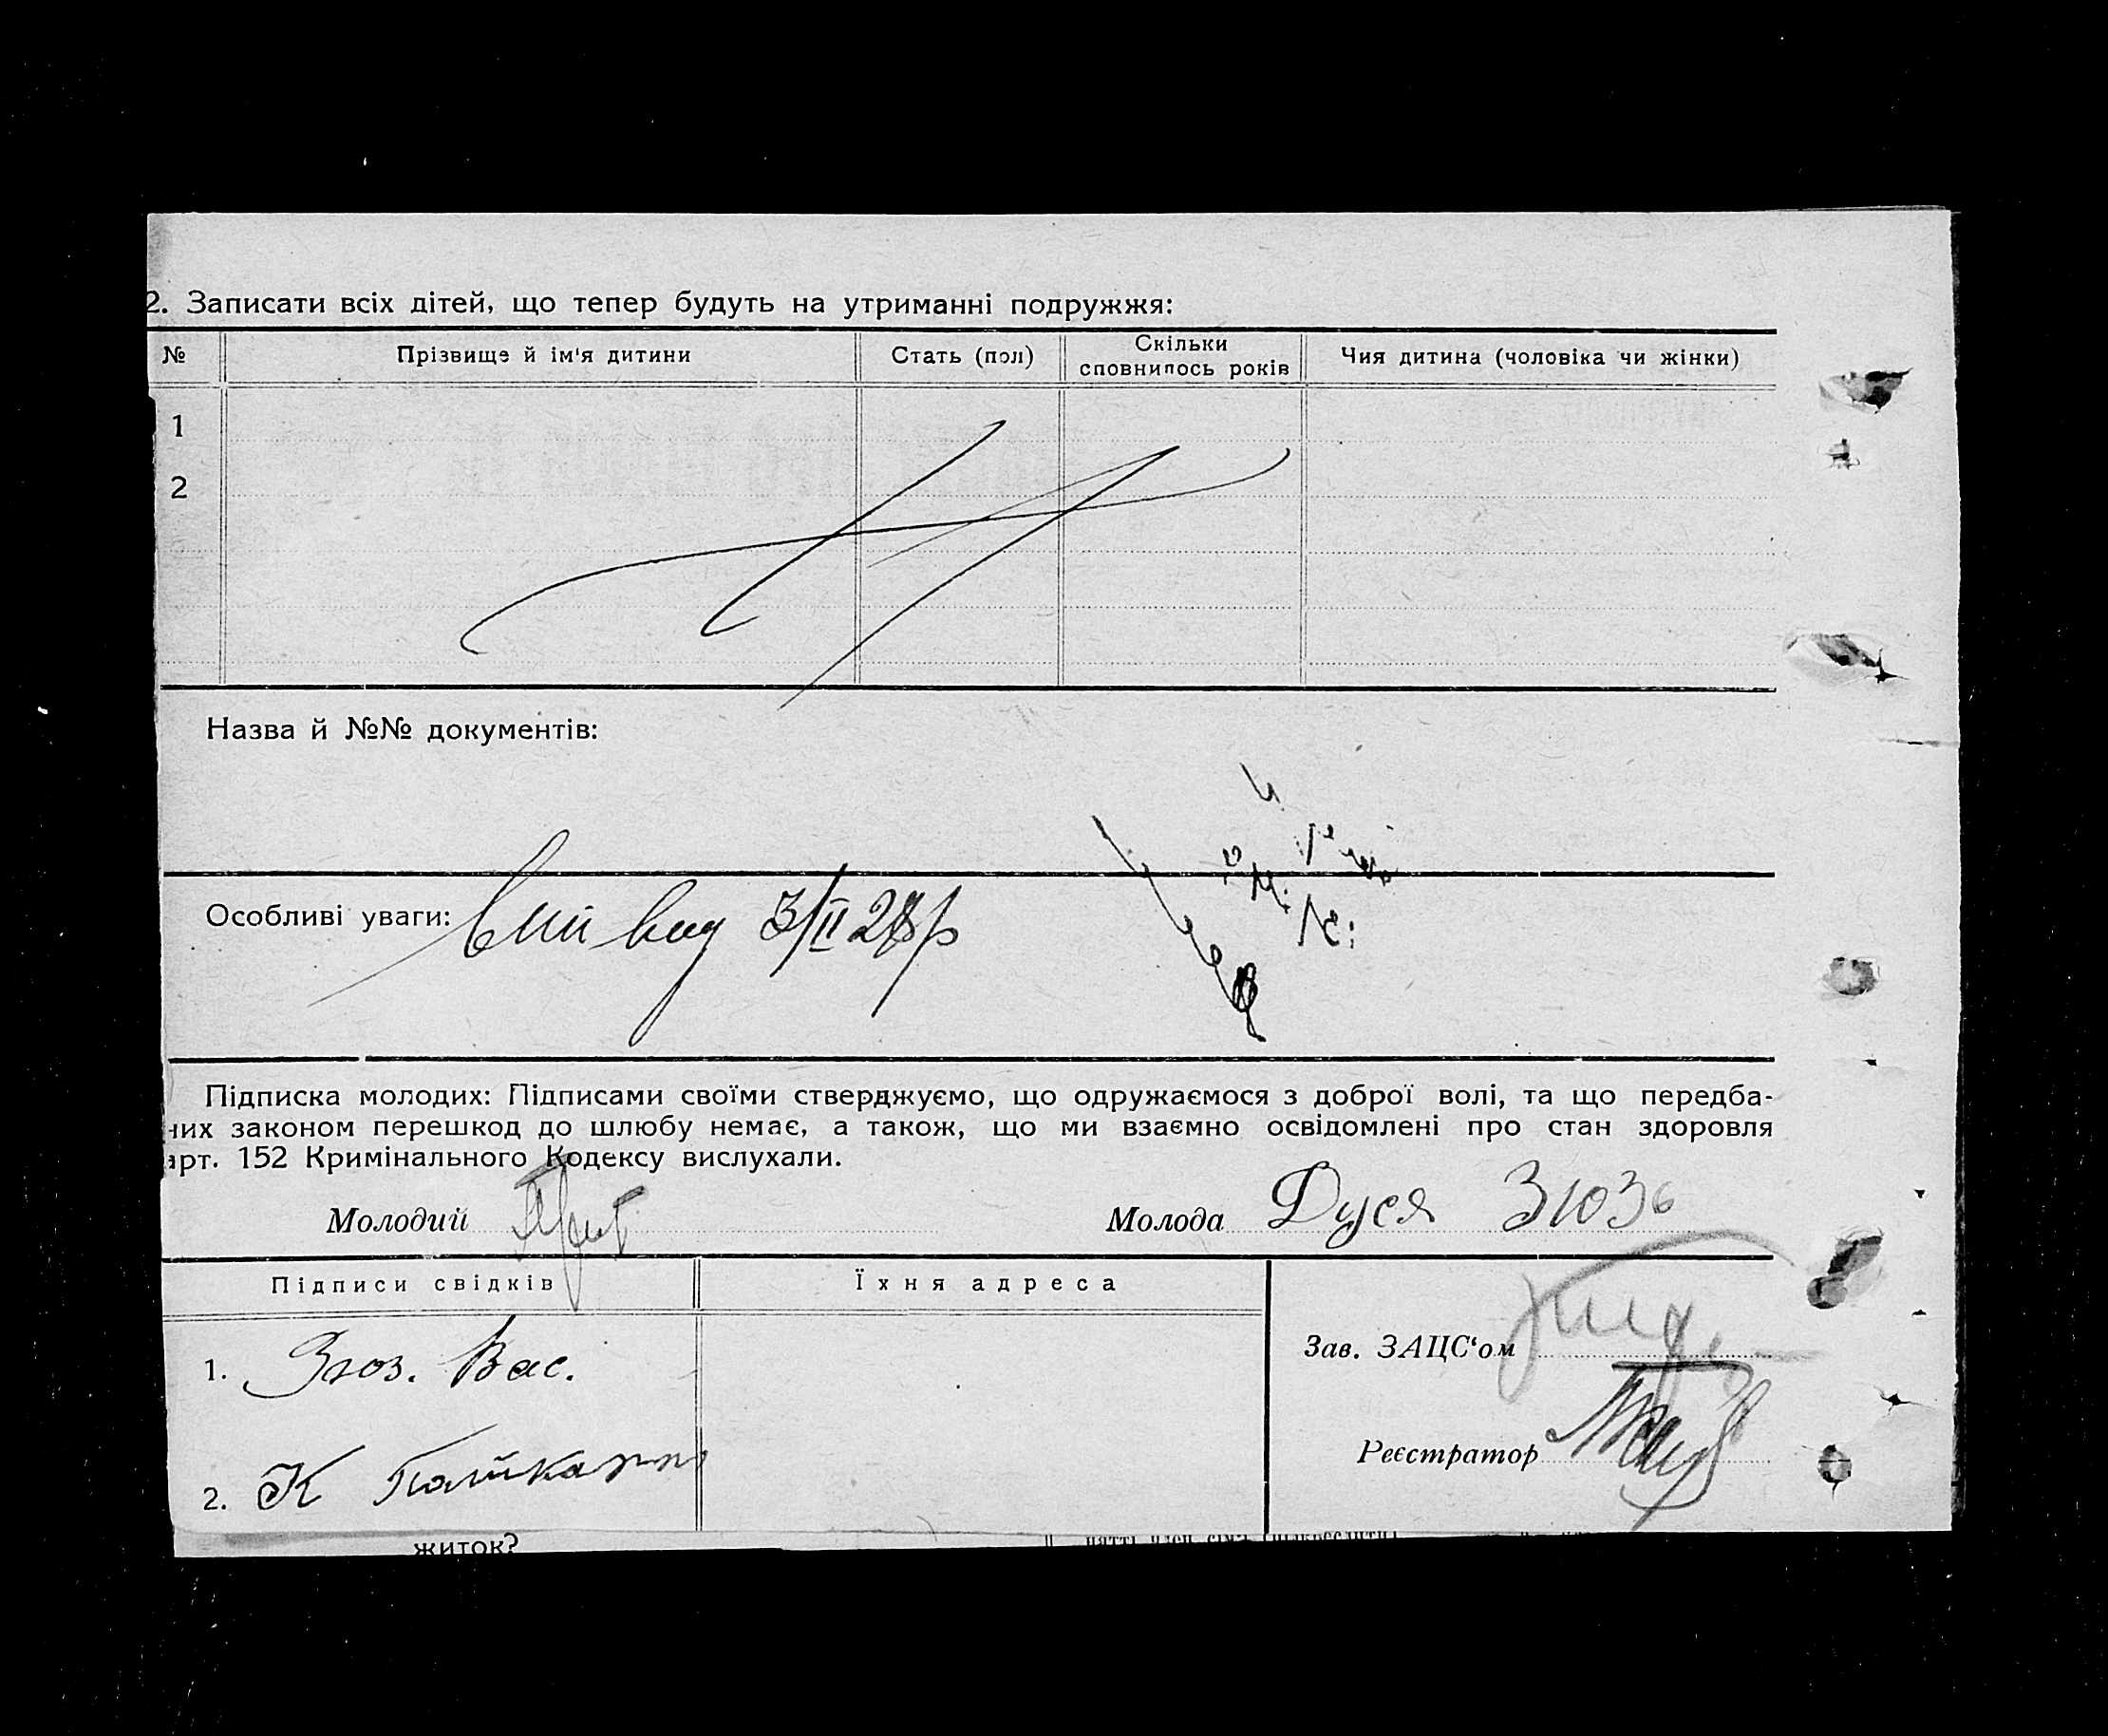 2. Записати всіх дітей, що тепер будуть на утриманні подружжя:
№ Прізвище й ім'я дитини Стать (пол) Скільки сповнилось років Чия дитина (чоловіка чи жінки)
1
2
Назва й №№ документів:
Особливі уваги: 3/II 28 р
Підписка молодих: Підписами своїми стверджуємо, що одружаємося з доброї волі, та що передба-
них законом перешкод до шлюбу немає, а також, що ми взаємно освідомлені про стан здоровля
арт. 152 Кримінального Кодексу вислухали.
Молодий Молода Дуся
Підписи свідків Їхня адреса
Зав. ЗАЦС'ом
1. Вас.
Реєстратор
2. К
житок?